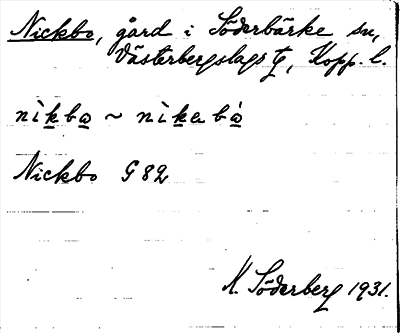 Nickbo, gård i Söderbärke sn,
Västerbergslags tg, Kopp. l.
nìkbo ~ nìkebó
Nickbo G 82
N. Söderberg 1931.